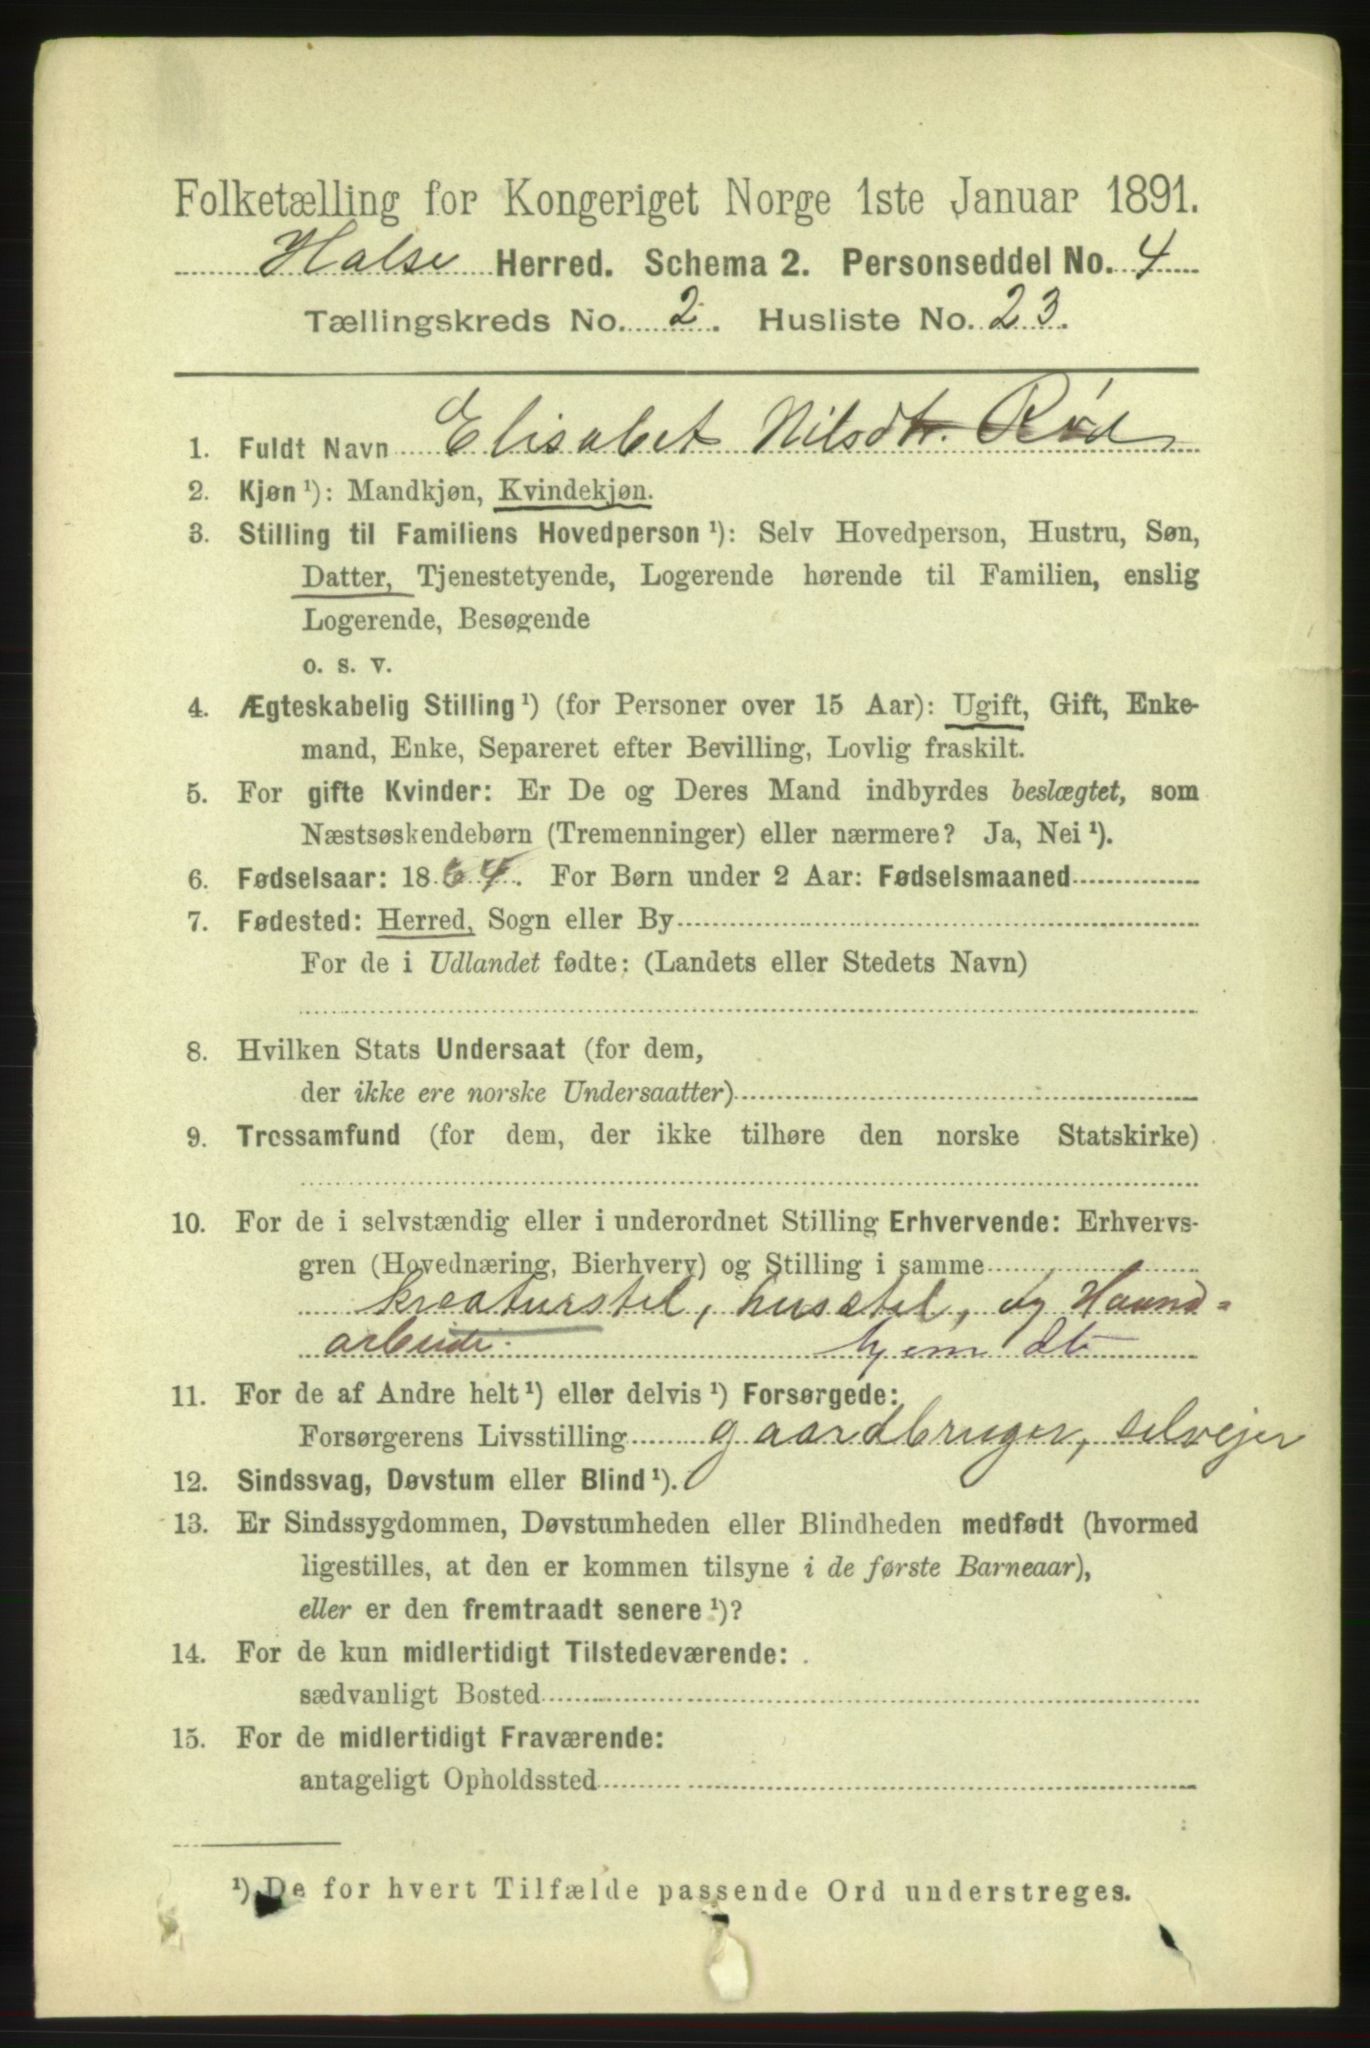 Folketælling for Kongeriget Norge 1ste Januar 1891.
Halse Herred. Schema 2. Personseddel No. 4
Tællingskreds No. 2. Husliste No. 23.
1. Fuldt Navn Elisabet Nilsdtr. Rød
2. Kjøn ¹): Mandkjøn, Kvindekjøn.
3. Stilling til Familiens Hovedperson ¹): Selv Hovedperson, Hustru, Søn,
Datter, Tjenestetyende, Logerende hørende til Familien, enslig
Logerende, Besøgende
o. s. v.
4. Ægteskabelig Stilling ¹) (for Personer over 15 Aar): Ugift, Gift, Enke-
mand, Enke, Separeret efter Bevilling, Lovlig fraskilt.
5. For gifte Kvinder: Er De og Deres Mand indbyrdes beslægtet, som
Næstsøskendebørn (Tremenninger) eller nærmere? Ja, Nei ¹).
6. Fødselsaar: 1864. For Børn under 2 Aar: Fødselsmaaned
7. Fødested: Herred, Sogn eller By
For de i Udlandet fødte: (Landets eller Stedets Navn)
8. Hvilken Stats Undersaat (for dem,
der ikke ere norske Undersaatter)
9. Trossamfund (for dem, der ikke tilhøre den norske Statskirke)
10. For de i selvstændig eller i underordnet Stilling Erhvervende: Erhvervs-
gren (Hovednæring, Bierhverv) og Stilling i samme
kreaturstel, husstel, og Haand-
arbeide. hjem dt
11. For de af Andre helt ¹) eller delvis ¹) Forsørgede:
Forsørgerens Livsstilling gaardbruger, selvejer
12. Sindssvag, Døvstum eller Blind ¹).
13. Er Sindssygdommen, Døvstumheden eller Blindheden medfødt (hvormed
ligestilles, at den er kommen tilsyne i de første Barneaar),
eller er den fremtraadt senere ¹)?
14. For de kun midlertidigt Tilstedeværende:
sædvanligt Bosted
15. For de midlertidigt Fraværende:
antageligt Opholdssted
¹) De for hvert Tilfælde passende Ord understreges.